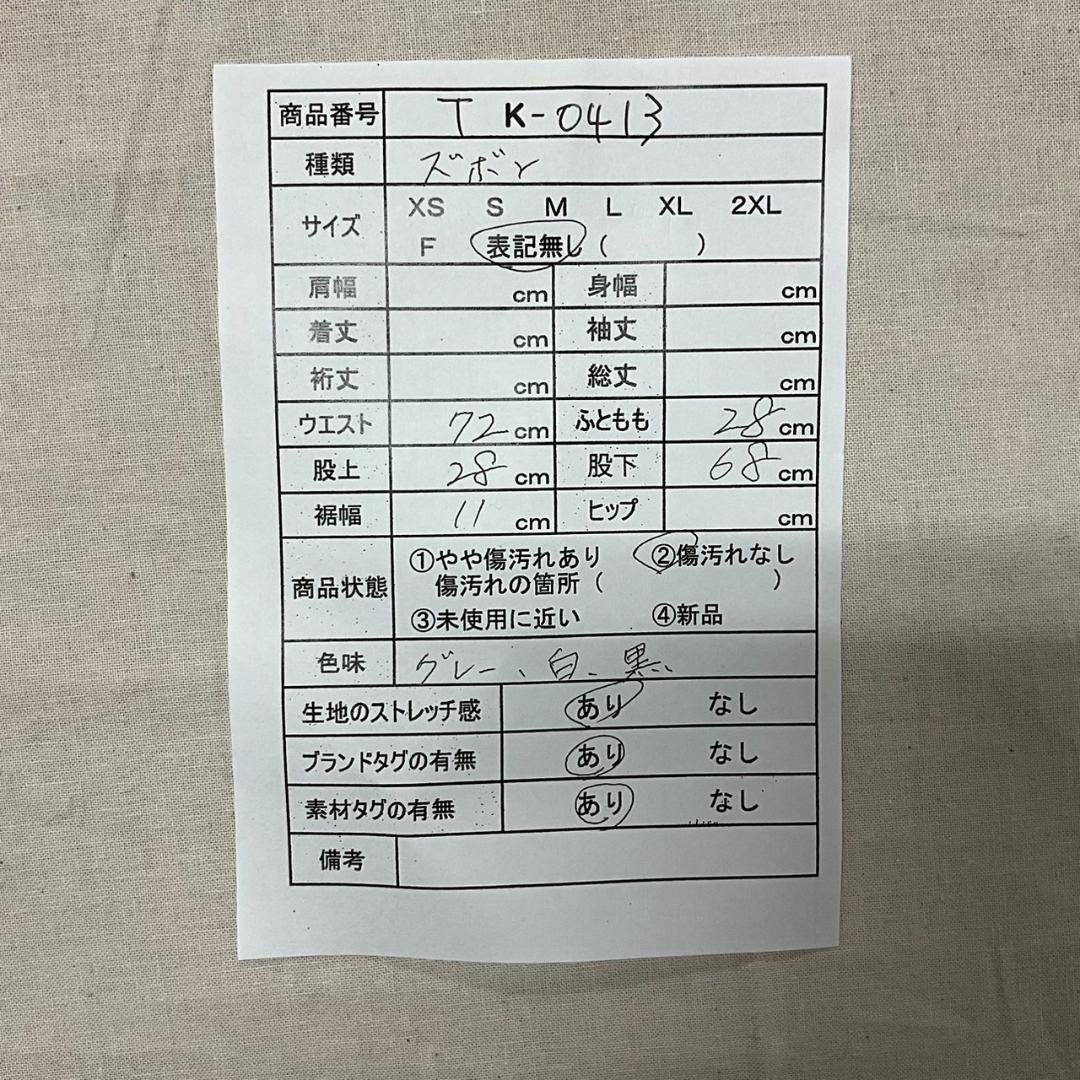 商品番号 T K-0413
種類 ズボン
サイズ XS S M L XL 2XL
F 表記無し ( )
肩幅 cm 身幅 cm
着丈 cm 袖丈 cm
裄丈 cm 総丈 cm
ウエスト 72 cm ふともも 28 cm
股上 28 cm 股下 68 cm
裾幅 11 cm ヒップ cm
商品状態 ①やや傷汚れあり ②傷汚れなし
傷汚れの箇所 ( )
③未使用に近い ④新品
色味 グレー、白、黒、
生地のストレッチ感 あり なし
ブランドタグの有無 あり なし
素材タグの有無 あり なし
備考